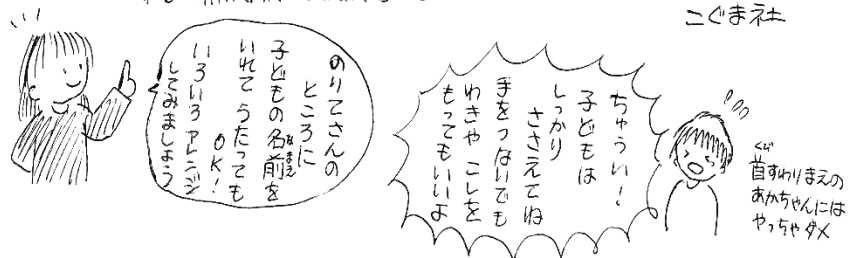 こぐま社
のりてさんの
ところに
子どもの名前を
なまえ
いれて うたっても
OK!
いろいろアレンジ
してみましょう
ちゅうい!
子どもは
しっかり
ささえてね
手をつないでも
わきや こしを
もってもいいよ
くび
首すわりまえの
あかちゃんには
やっちゃダメ